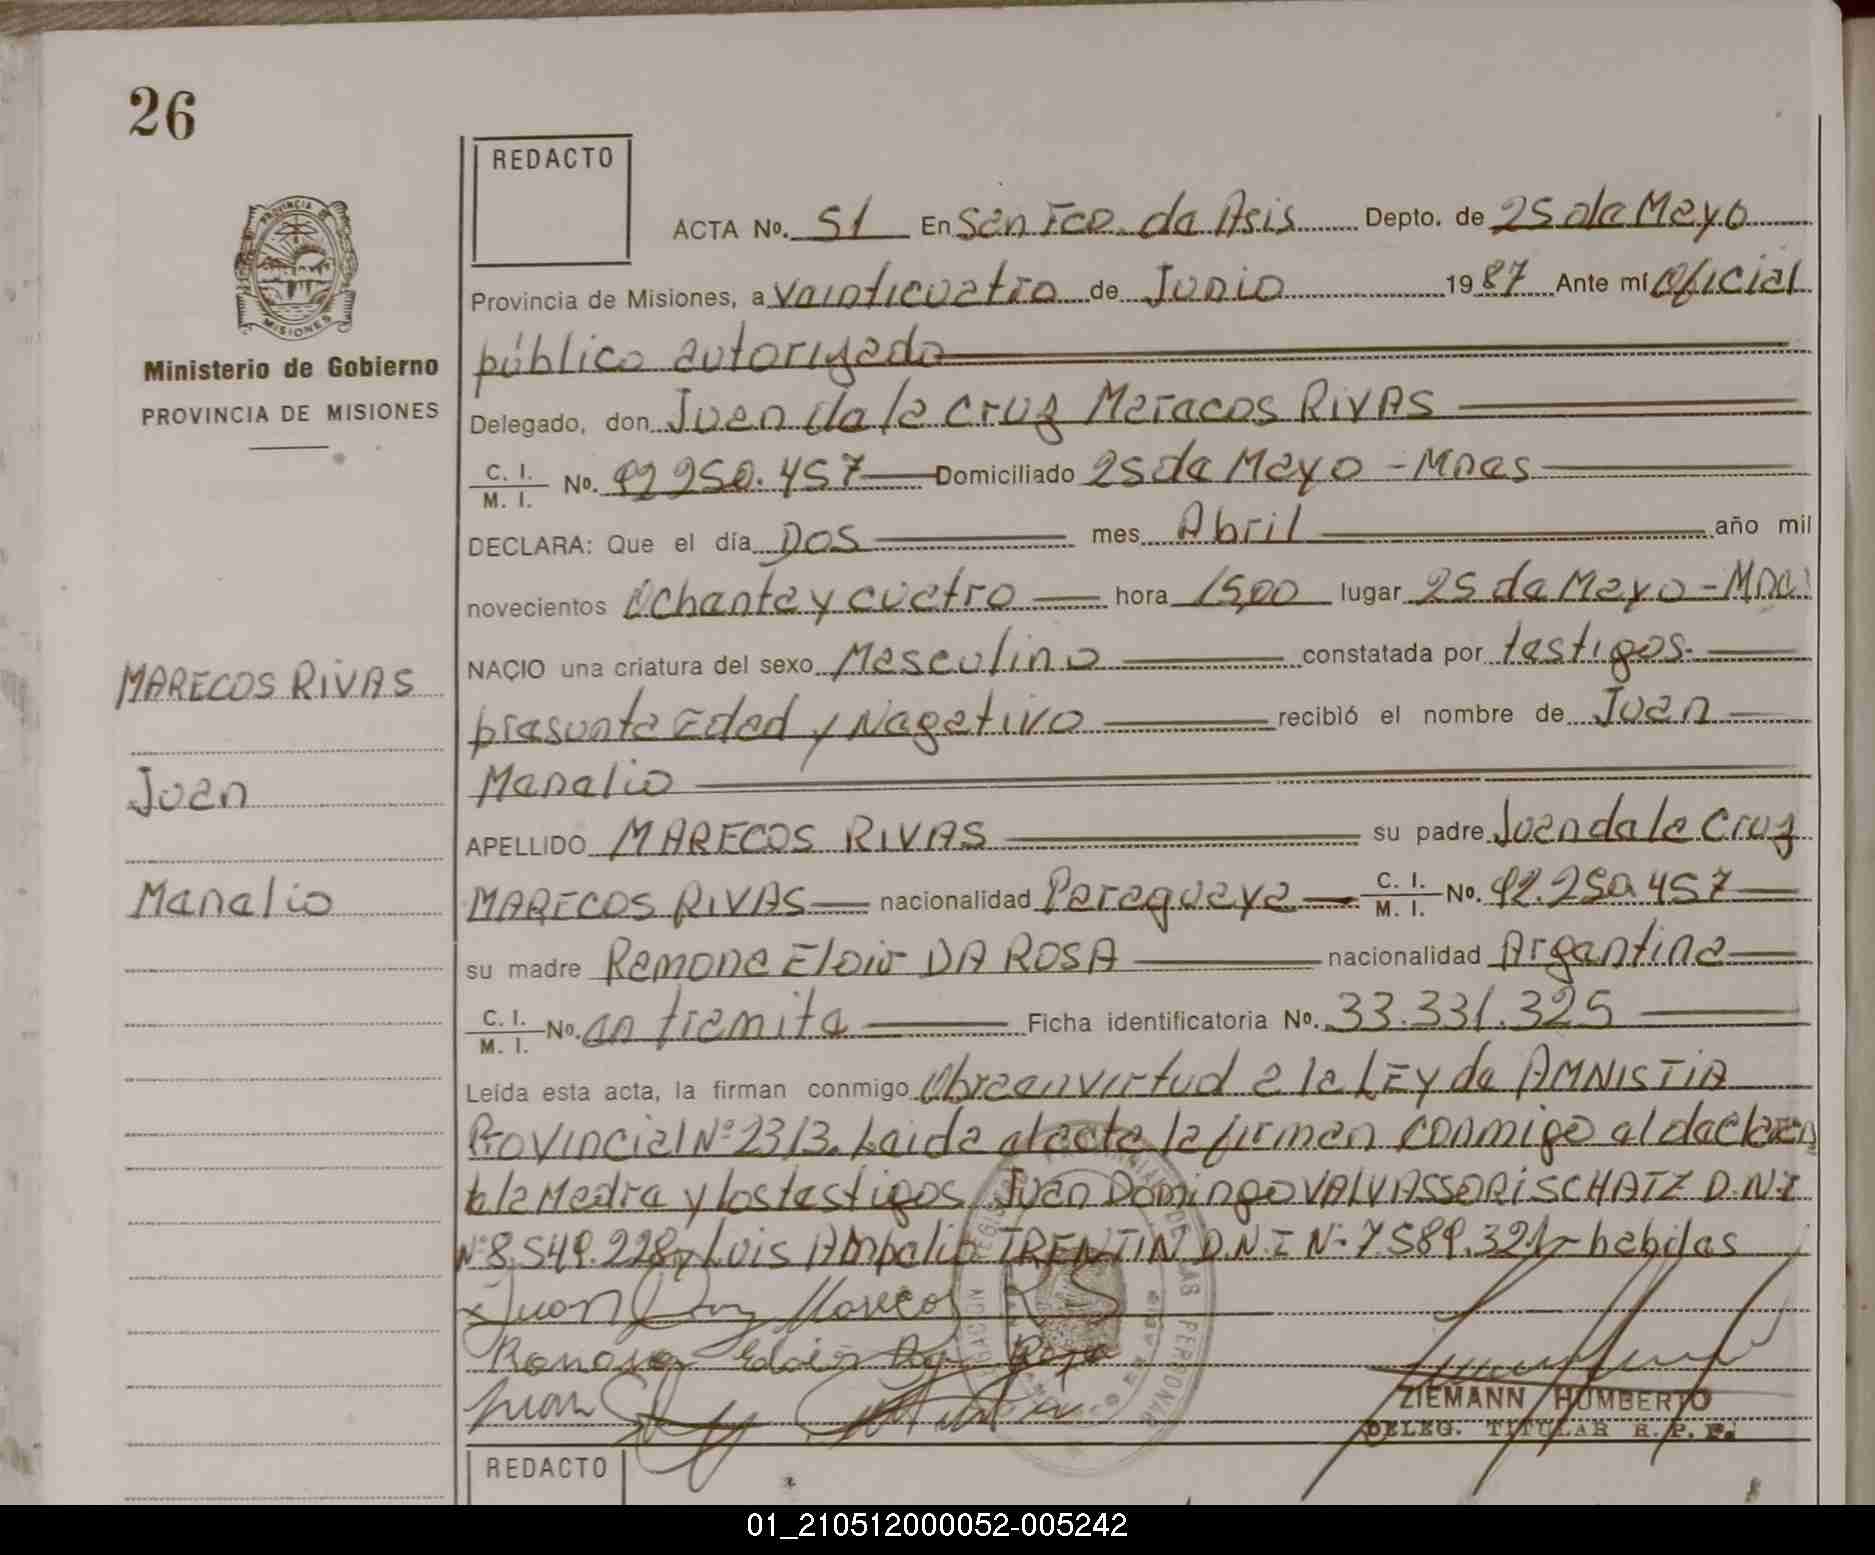 26
REDACTO
ACTA No. 51 En San Fco. de Asis Depto. de 25 de Mayo
PROVINCIA DE
MISIONES
Provincia de Misiones, a Veinticuatro de Junio 1987 Ante mí Oficial
Ministerio de Gobierno
público autorizado
PROVINCIA DE MISIONES
Delegado, don Juan de la Cruz Marecos RIVAS
C. I.
M. I. No. 92 250.457 Domiciliado 25 de Mayo - Mnes
DECLARA: Que el día DOS mes Abril año mil
novecientos Ochenta y cuatro hora 15,00 lugar 25 de Mayo - Mnes
MARECOS RIVAS
NACIO una criatura del sexo Masculino constatada por testigos.
presunta Edad y Negativo recibió el nombre de Juan
Juan
Manelio
APELLIDO MARECOS RIVAS su padre Juan de la Cruz
Manelio
MARECOS RIVAS nacionalidad Paraguaya C. I. M. I. No. 92.250.457
su madre Ramona Eloir DA ROSA nacionalidad Argentina
C. I.
M. I. No. en tramite Ficha identificatoria No. 33.331.325
Leída esta acta, la firman conmigo Obra en virtud a la LEY de AMNISTIA
Provincial Nº 2313. Leida el acta la firman conmigo el declaran
te la Madre y los testigos Juan Domingo VALVASSORI SCHATZ D.N.I
Nº 8.549.228 y Luis TRENTIN D.N.I Nº 7.589.321 habiles
Juan Cruz Marecos R S
Ramona Eloir Da Rosa
Juan
ZIEMANN HUMBERTO
DELEG. TITULAR R. P. P.
REDACTO
01_210512000052-005242